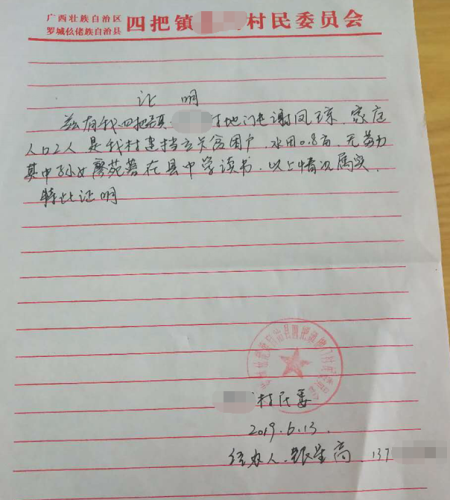 广西壮族自治区
罗城仫佬族自治县
四把镇 村民委员会
证 明
兹有我四把镇 地门屯谢凤琼，家庭
人口2人是我村建档立卡贫困户，水田0.8亩，无劳力
其中孙女廖苑 在县中学读书，以上情况属实
特此证明
村民委
2019.6.13
经办人 银 高 137